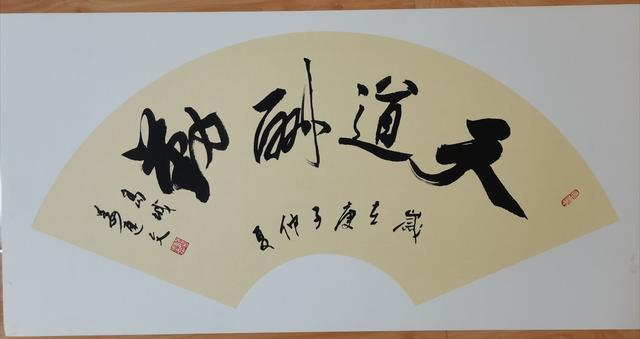 天道酬勤
岁在庚子仲夏